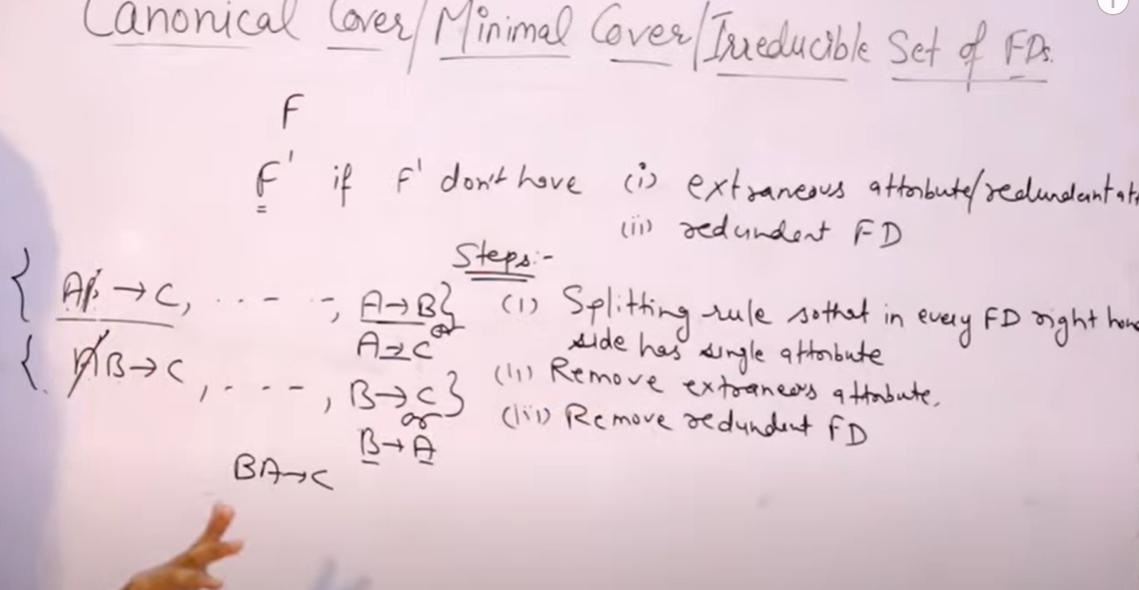 Canonical Cover/Minimal Cover/Irreducible Set of FDs.
F
F' if F' don't have (i) extraneous attribute/redundant att
(ii) redundent FD
Steps:-
{ AB → C, ..... , A→B} (i) Splitting rule so that in every FD right han
or side has single attribute
A→C
{ AB→C, ..... , B→C} (ii) Remove extraneous attribute.
or (iii) Remove redundent FD
B→A
BA→C